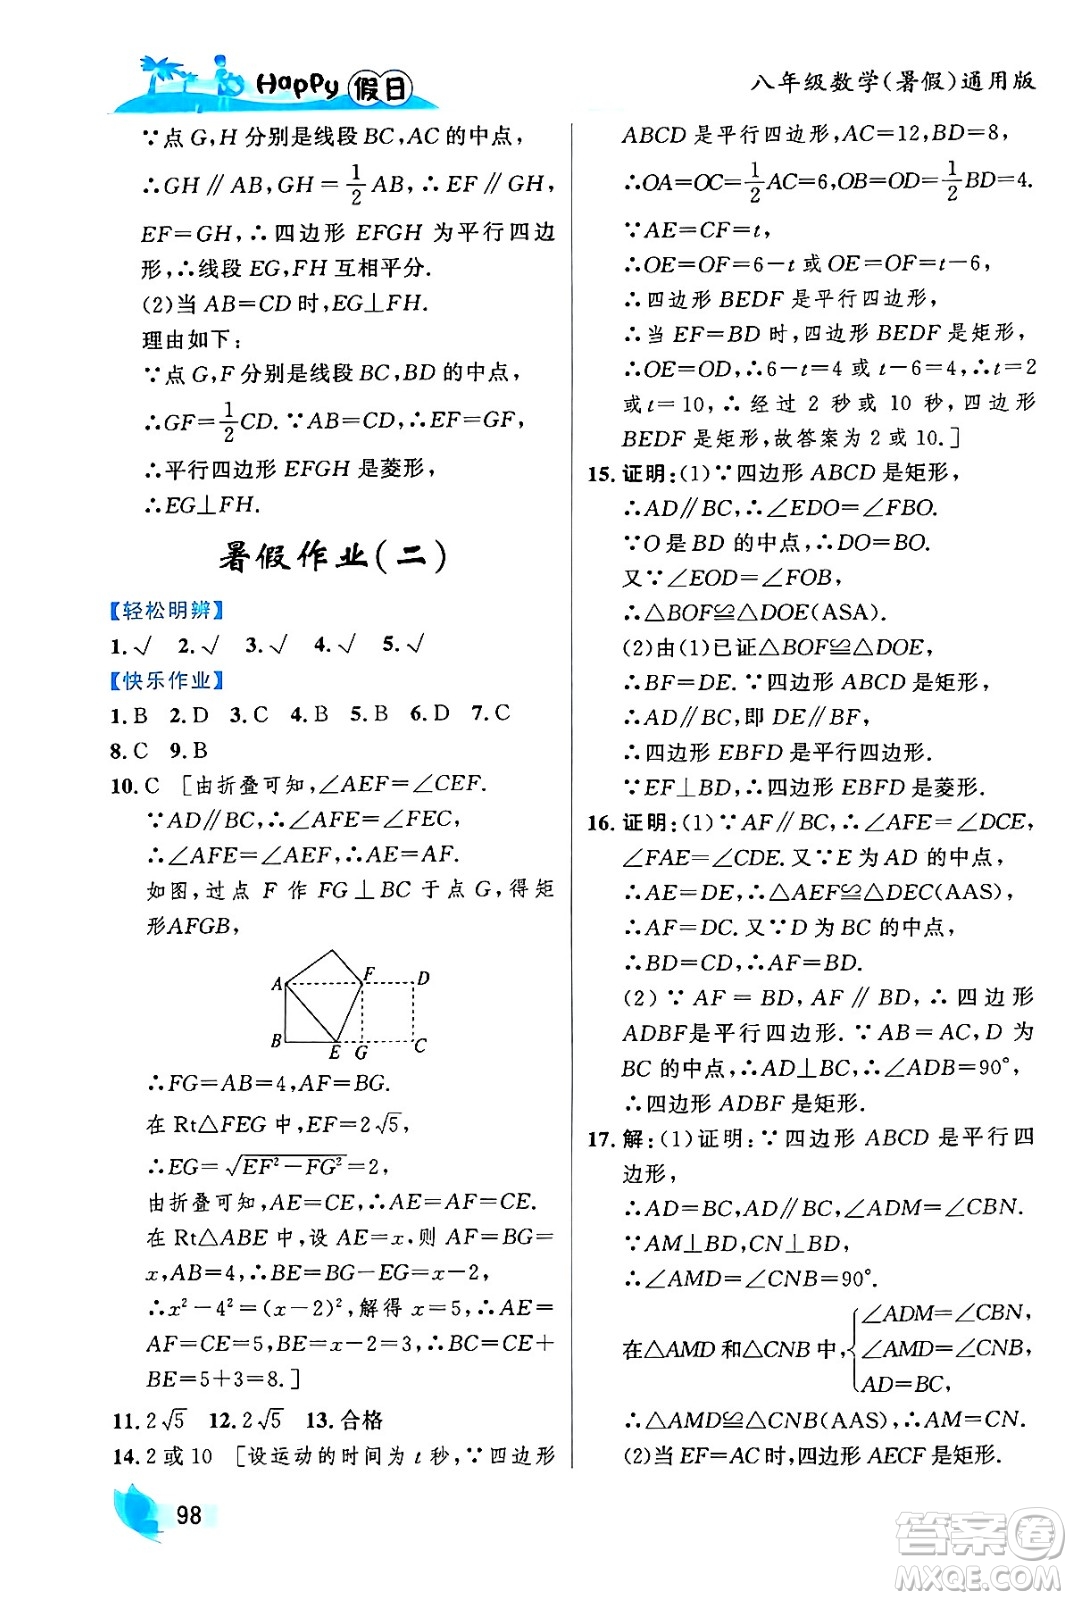 Happy 假日
八年级数学(暑假)通用版
∵点 G,H 分别是线段 BC,AC 的中点,
∴GH∥AB,GH=1/2AB,∴EF∥GH,
EF=GH,∴四边形 EFGH 为平行四边
形,∴线段 EG,FH 互相平分.
(2)当 AB=CD 时,EG⊥FH.
理由如下:
∵点 G,F 分别是线段 BC,BD 的中点,
∴GF=1/2CD.∵AB=CD,∴EF=GF,
∴平行四边形 EFGH 是菱形,
∴EG⊥FH.
暑假作业(二)
【轻松明辨】
1.√ 2.√ 3.√ 4.√ 5.√
【快乐作业】
1.B 2.D 3.C 4.B 5.B 6.D 7.C
8.C 9.B
10.C [由折叠可知,∠AEF=∠CEF.
∵AD∥BC,∴∠AFE=∠FEC,
∴∠AFE=∠AEF,∴AE=AF.
如图,过点 F 作 FG⊥BC 于点 G,得矩
形AFGB,
A F D
B E G C
∴FG=AB=4,AF=BG.
在 Rt△FEG 中,EF=2√5,
∴EG=√(EF²-FG²)=2,
由折叠可知,AE=CE,∴AE=AF=CE.
在 Rt△ABE 中,设 AE=x,则 AF=BG=
x,AB=4,∴BE=BG-EG=x-2,
∴x²-4²=(x-2)²,解得 x=5,∴AE=
AF=CE=5,BE=x-2=3,∴BC=CE+
BE=5+3=8.]
11.2√5 12.2√5 13.合格
14.2或10 [设运动的时间为 t 秒,∵四边形
98
ABCD 是平行四边形,AC=12,BD=8,
∴OA=OC=1/2AC=6,OB=OD=1/2BD=4.
∵AE=CF=t,
∴OE=OF=6-t 或 OE=OF=t-6,
∴四边形 BEDF 是平行四边形,
∴当 EF=BD 时,四边形 BEDF 是矩形,
∴OE=OD,∴6-t=4 或 t-6=4,∴t=2
或t=10,∴经过 2 秒或 10 秒,四边形
BEDF 是矩形,故答案为 2 或 10.]
15.证明:(1)∵四边形 ABCD 是矩形,
∴AD∥BC,∴∠EDO=∠FBO.
∵O 是 BD 的中点,∴DO=BO.
又∵∠EOD=∠FOB,
∴△BOF≌△DOE(ASA).
(2)由(1)已证△BOF≌△DOE,
∴BF=DE.∵四边形 ABCD 是矩形,
∴AD∥BC,即 DE∥BF,
∴四边形 EBFD 是平行四边形.
∵EF⊥BD,∴四边形 EBFD 是菱形.
16.证明:(1)∵AF∥BC,∴∠AFE=∠DCE,
∠FAE=∠CDE.又∵E 为 AD 的中点,
∴AE=DE,∴△AEF≌△DEC(AAS),
∴AF=DC.又∵D 为 BC 的中点,
∴BD=CD,∴AF=BD.
(2)∵AF=BD,AF∥BD,∴四边形
ADBF是平行四边形.∵AB=AC,D 为
BC 的中点,∴AD⊥BC,∴∠ADB=90°,
∴四边形 ADBF 是矩形.
17.解:(1)证明:∵四边形 ABCD 是平行四
边形,
∴AD=BC,AD∥BC,∴∠ADM=∠CBN.
∵AM⊥BD,CN⊥BD,
∴∠AMD=∠CNB=90°.
∠ADM=∠CBN,
在△AMD 和△CNB 中,∠AMD=∠CNB,
AD=BC,
∴△AMD≌△CNB(AAS),∴AM=CN.
(2)当 EF=AC 时,四边形 AECF 是矩形.
答案圈
MXQE.COM